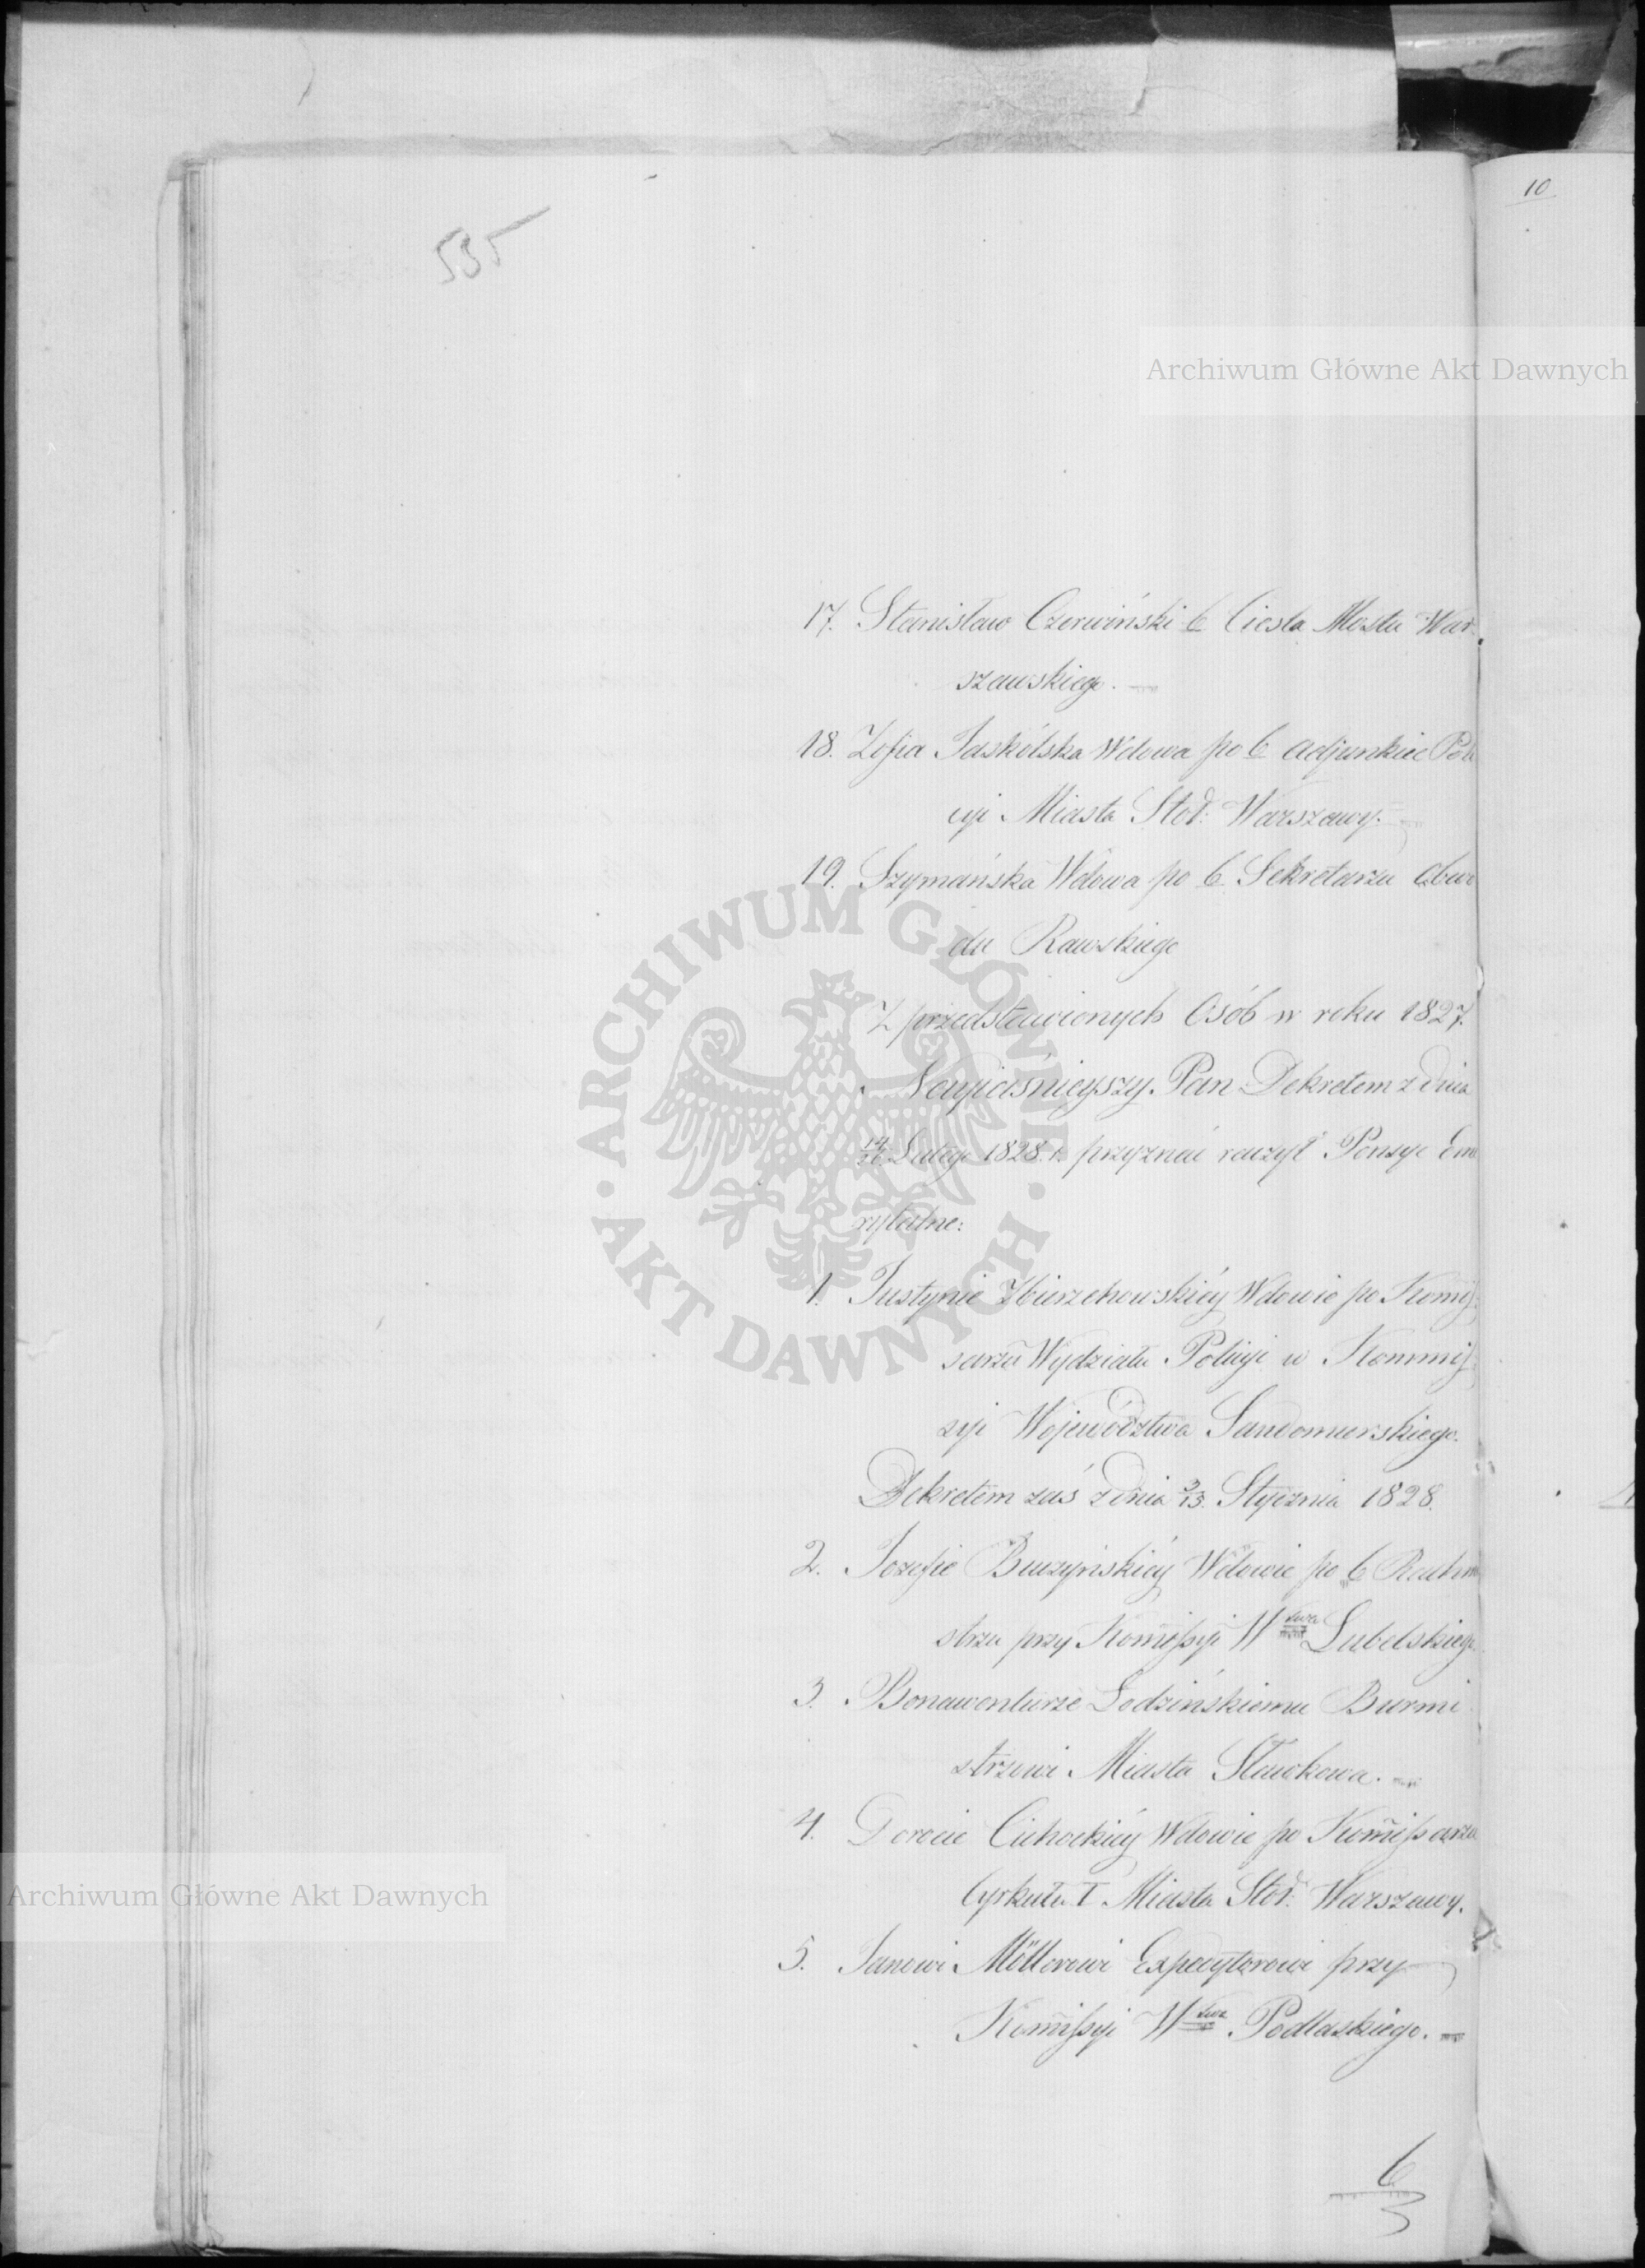 10
535
Archiwum Główne Akt Dawnych
17. Stanisław Czerwiński b. Ciesla Mostu War-
szawskiego. —
18. Zofia Jaskólska Wdowa po b. Adjunkcie Poli
cyi Miasta Stoł: Warszawy. —
19. Szymańska Wdowa po b. Sekretarzu Obwo
du Rawskiego
Z przedstawionych Osób w roku 1827.
Nayjaśnieyszy Pan Dekretem z dnia
Lutego 1828 r. przyznać raczył Pensye Em
rytalne:
1. Justynie Zbierzchowskiéy Wdowie po Komis
sarzu Wydziału Policyi w Kommis
syi Województwa Sandomierskiego.
Dekretem zaś z dnia 3/15. Stycznia 1828.
2. Jozefie Buczyńskiéy Wdowie po b. Rachm
strzu przy Komissyi Wdztwa Lubelskiego
3. Bonawenturze Łodzińskiemu Burmi
strzowi Miasta Sławkowa. —
4. Dorocie Cichockiéy Wdowie po Komissarzu
Cyrkułu I Miasta Stoł: Warszawy.
5. Janowi Möllerowi Expedytorowi przy
Komissyi Wdztwa Podlaskiego. —
6
ARCHIWUM GŁÓWNE · AKT DAWNYCH ·
Archiwum Główne Akt Dawnych